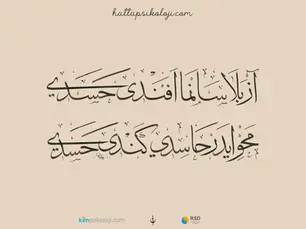 hattapsikoloji.com
آز بلا سانما افندی حسدی
محو ایدر حاسدی کندی حسدی
kimpsikoloji.com
RSD